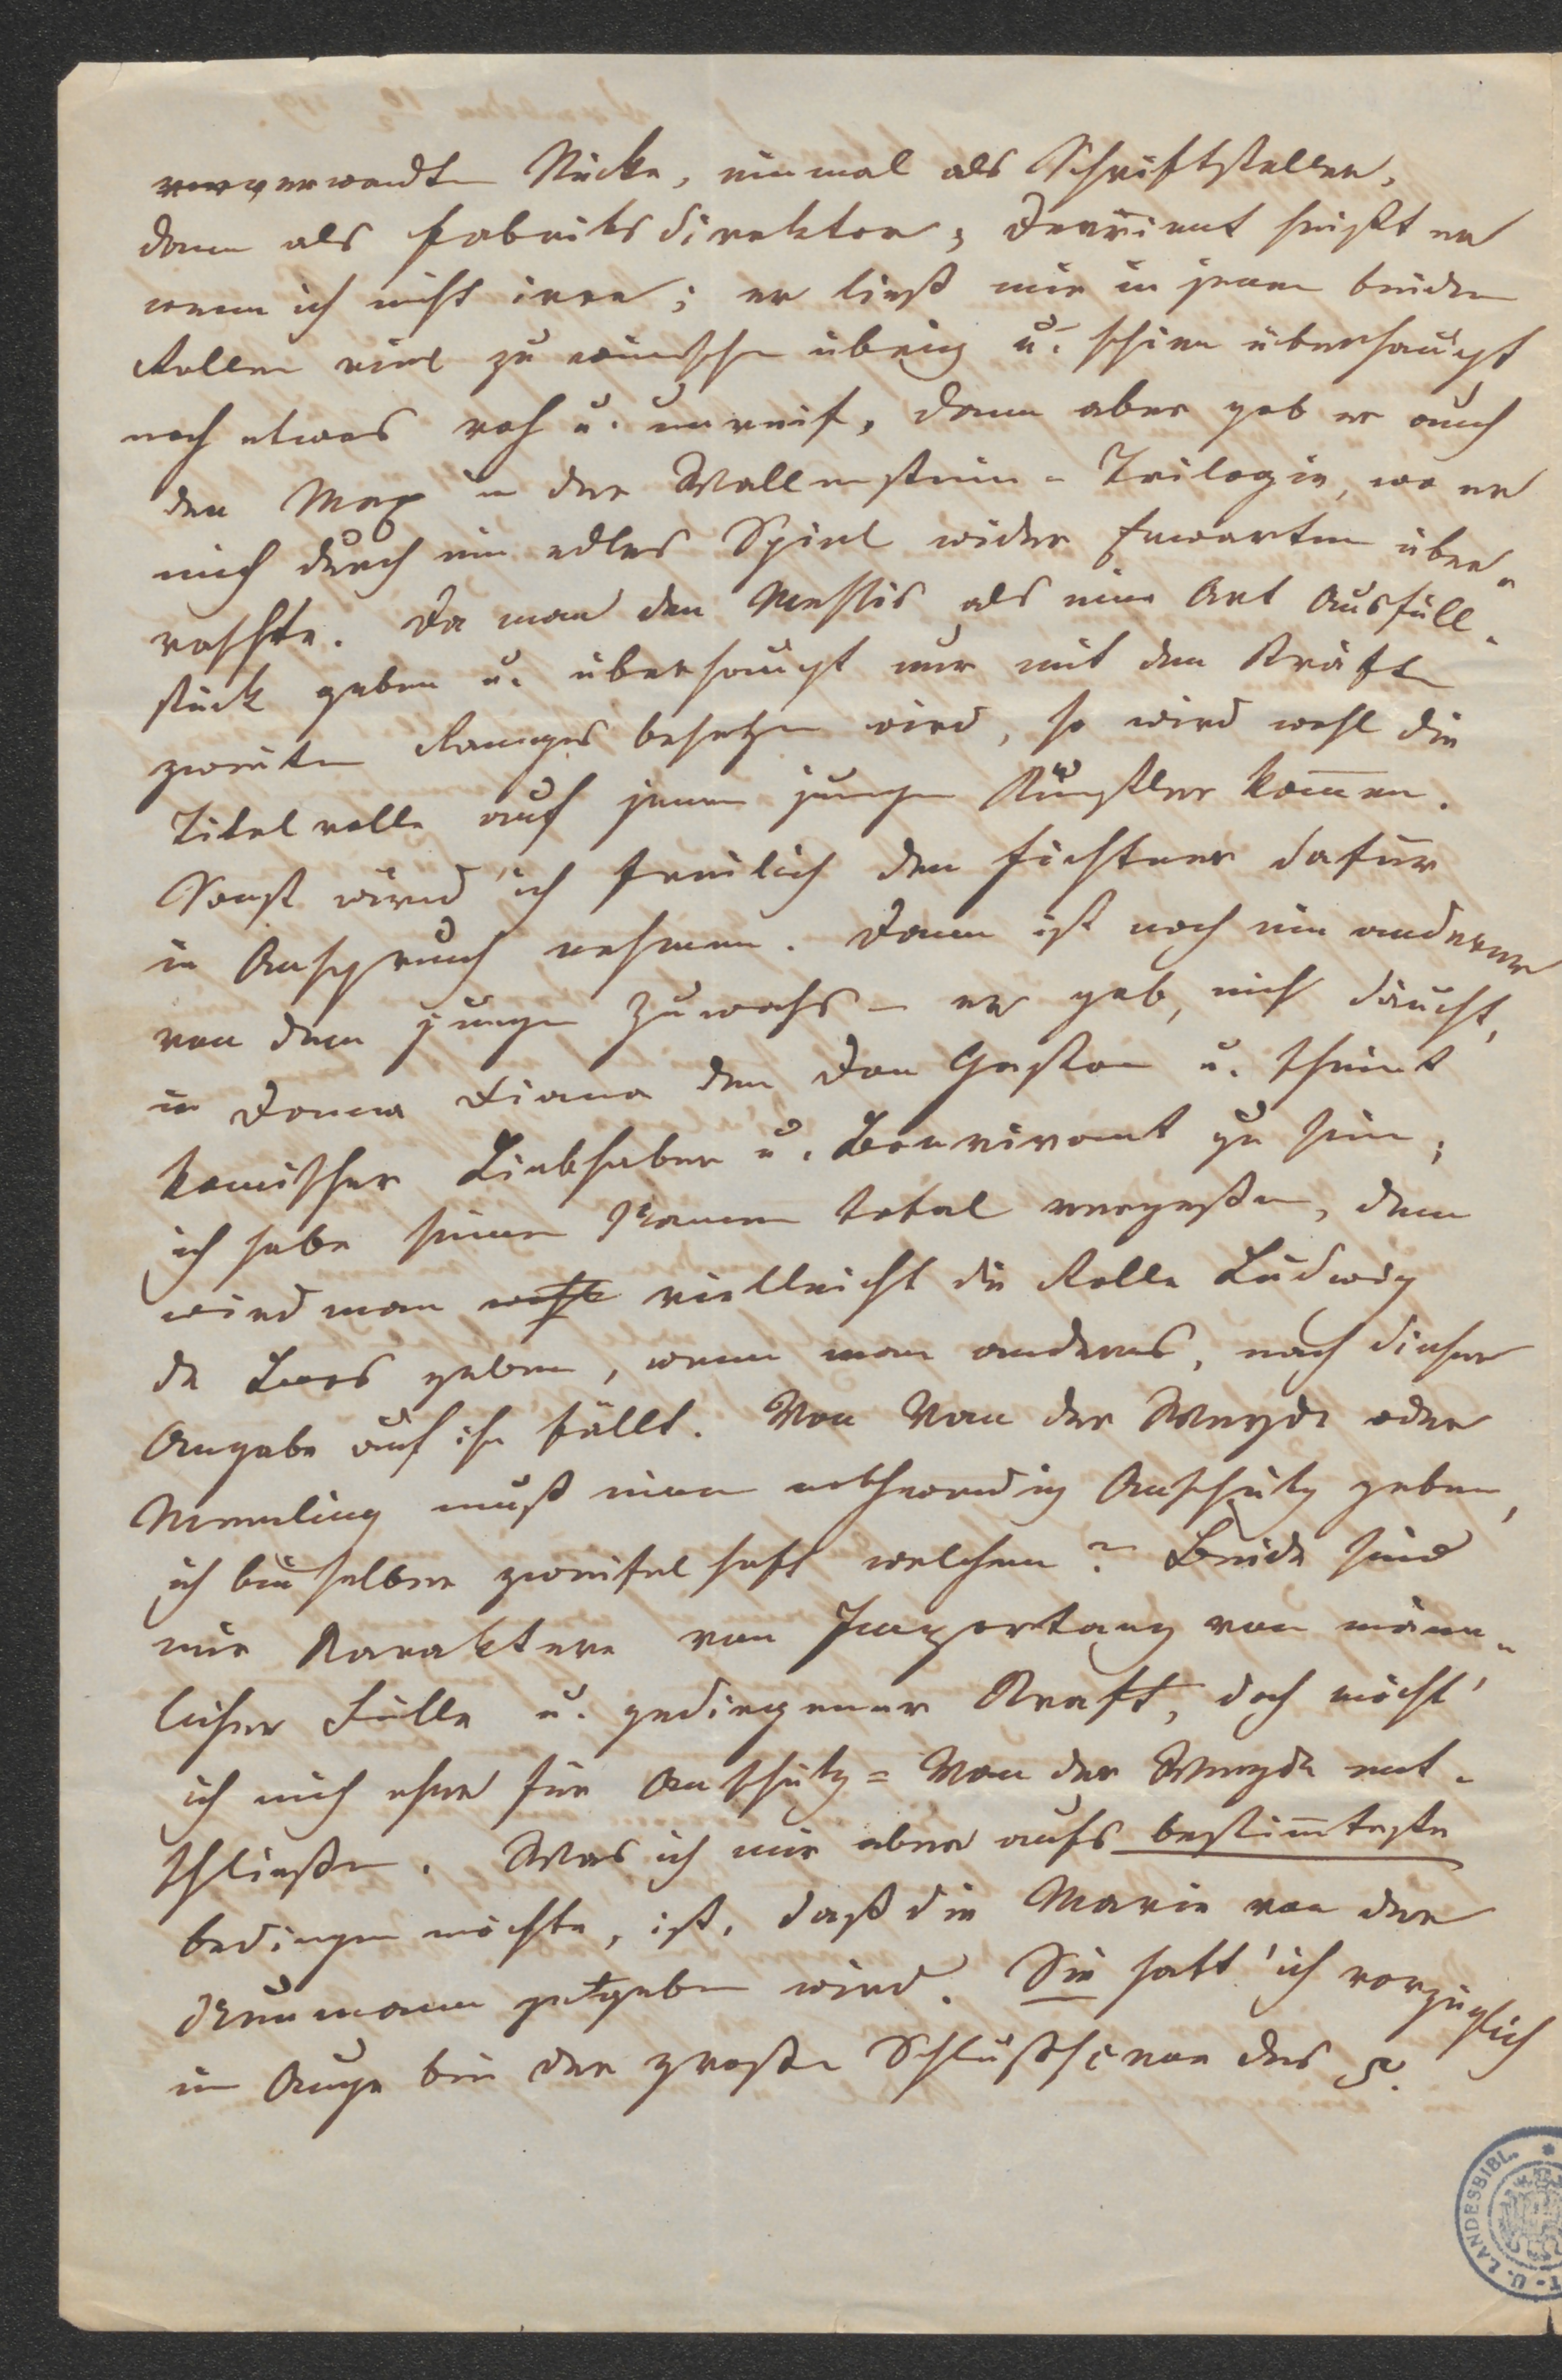 verwandten Stücke, einmal als Schriftsteller,
dann als Fabriksdirektor; Devrient heißt er
wenn ich nicht irre; er ließ mir in jenen beiden
Rollen viel zu wünschen übrig u. schien überhaupt
noch etwas roh u. unreif, dann aber gab er auch
den Max in der Wallenstein-Trilogie, wo er
mich durch ein edles Spiel wider Erwarten über-
raschte. Da man den Messis als eine Art Ausfüll-
stück geben u. überhaupt nur mit den Kräften
zweiten Ranges besetzen wird, so wird wohl die
Titelrolle auf jenen jungen Künstler kommen.
Sonst würd' ich freilich den Fichtner dafür
in Anspruch nehmen. Dann ist noch ein anderer
von dem jungen Zuwachs – er gab, mich däucht,
in Donna Diana den Don Gaston u. scheint
komischer Liebhaber u. Bonvivant zu sein;
ich habe seinen Namen total vergessen, dem
wird man wohl vielleicht die Rolle Ludwig
de Loos geben, wenn man anders, nach dieser
Angabe auf ihn fällt. Von Van der Weyde oder
Memling muß man nothwendig Anschütz geben,
ich bin selber zweifelhaft welchen? Beide sind
mir Karaktere von Importanz von männ-
licher Fülle u. gediegener Kraft, doch möcht'
ich mich eher für Anschütz = Van der Weyde ent-
schließen. Was ich mir aber aufs bestimmteste
bedingen möchte, ist, daß die Marie von der
Neumann gegeben wird. Sie hatt' ich vorzüglich
im Auge bei der großen Schlußscene des 5.
LANDESBIBL.